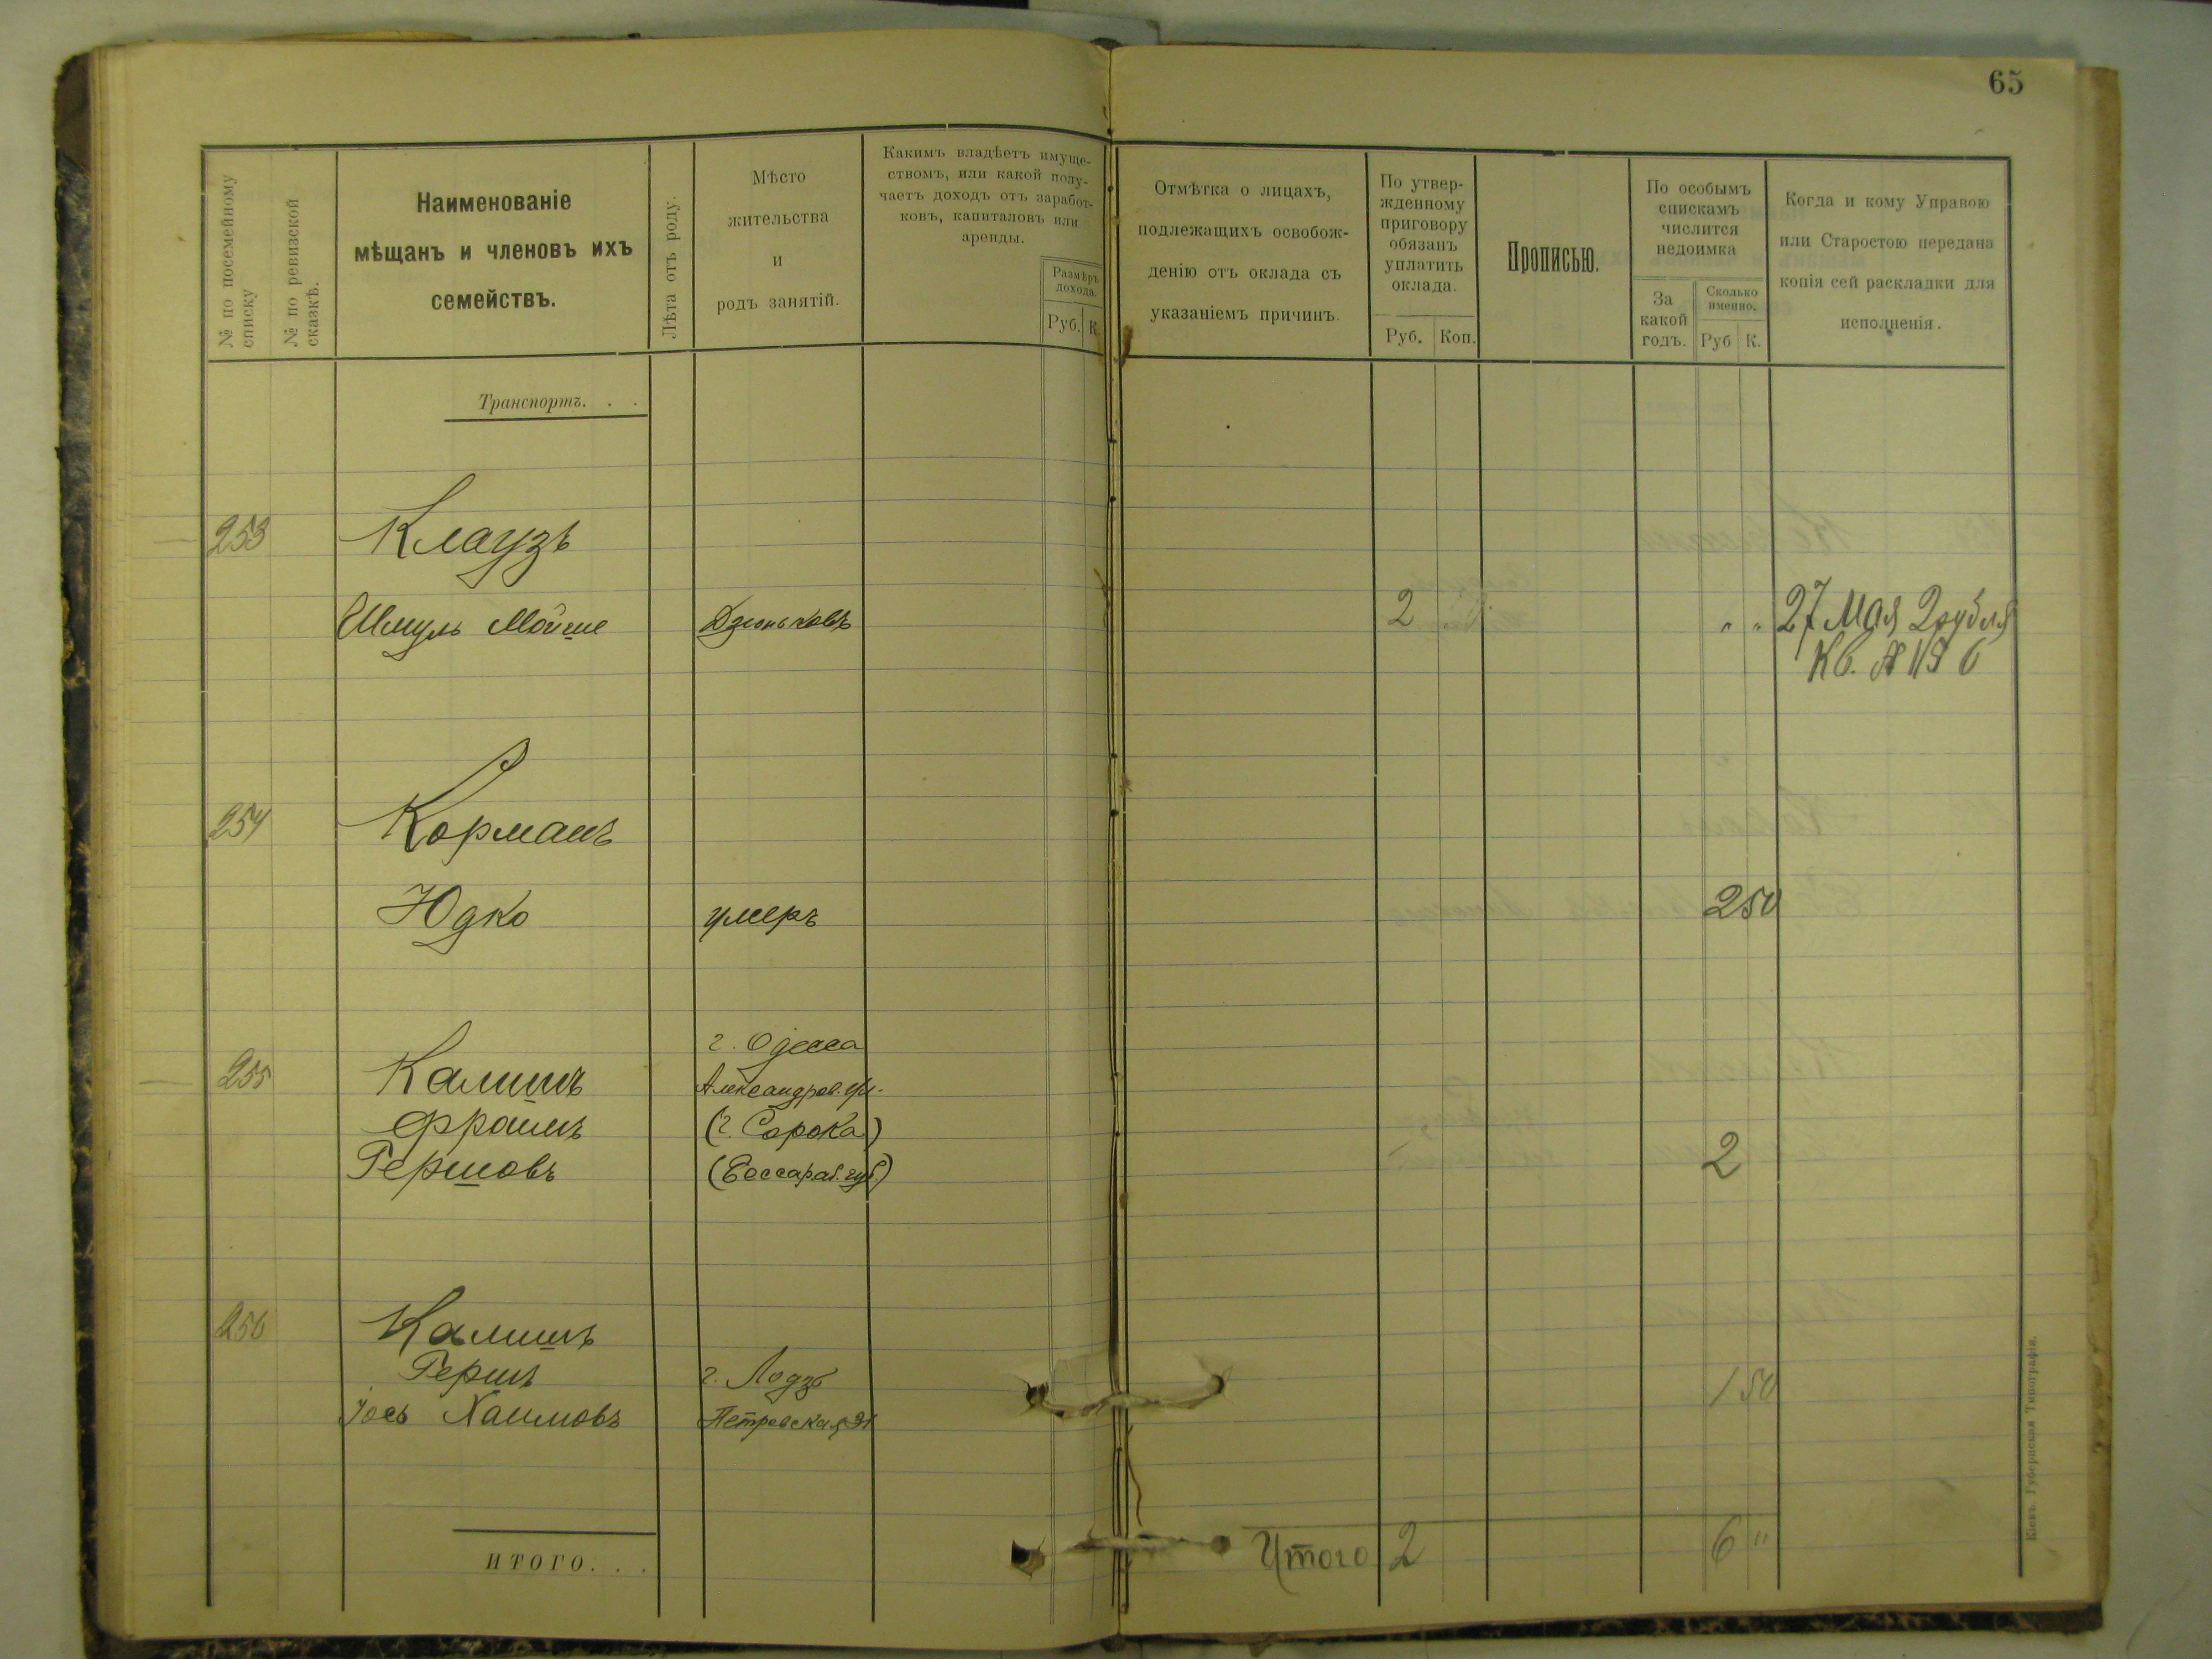 65
№ по посемейному списку
№ по ревизской сказкѣ.
Наименованіе
мѣщанъ и членовъ ихъ
семействъ.
Лѣта отъ роду.
Мѣсто
жительства
и
родъ занятій.
Какимъ владѣетъ имуще-
ствомъ, или какой полу-
чаетъ доходъ отъ заработ-
ковъ, капиталовъ или
аренды.
Размѣръ
дохода.
Руб. К.
Отмѣтка о лицахъ,
подлежащихъ освобож-
денію отъ оклада съ
указаніемъ причинъ.
По утвер-
жденному
приговору
обязанъ
уплатить
оклада.
Руб. Коп.
Прописью.
По особымъ
спискамъ
числится
недоимка
За
какой
годъ.
Сколько
именно.
Руб К.
Когда и кому Управою
или Старостою передана
копія сей раскладки для
исполненія.
Транспортъ. . .
253 Клаузъ
Шмуль Мойше Дзюньковъ 2 " " 27 Мая 2 рубля
Кв. №
254 Корманъ
Юдко умеръ 2 50
г. Одесса
255 Калишъ Александров. ул.
Фроимъ (г. Сорока)
Гершовъ (Бессараб. губ.) 2
256 Калишъ
Гершъ г. Лодзь 1 50
Іось Хаимовъ Петровская
ИТОГО. . .
Итого 2 6 "
Кіевъ. Губернская Типографія.